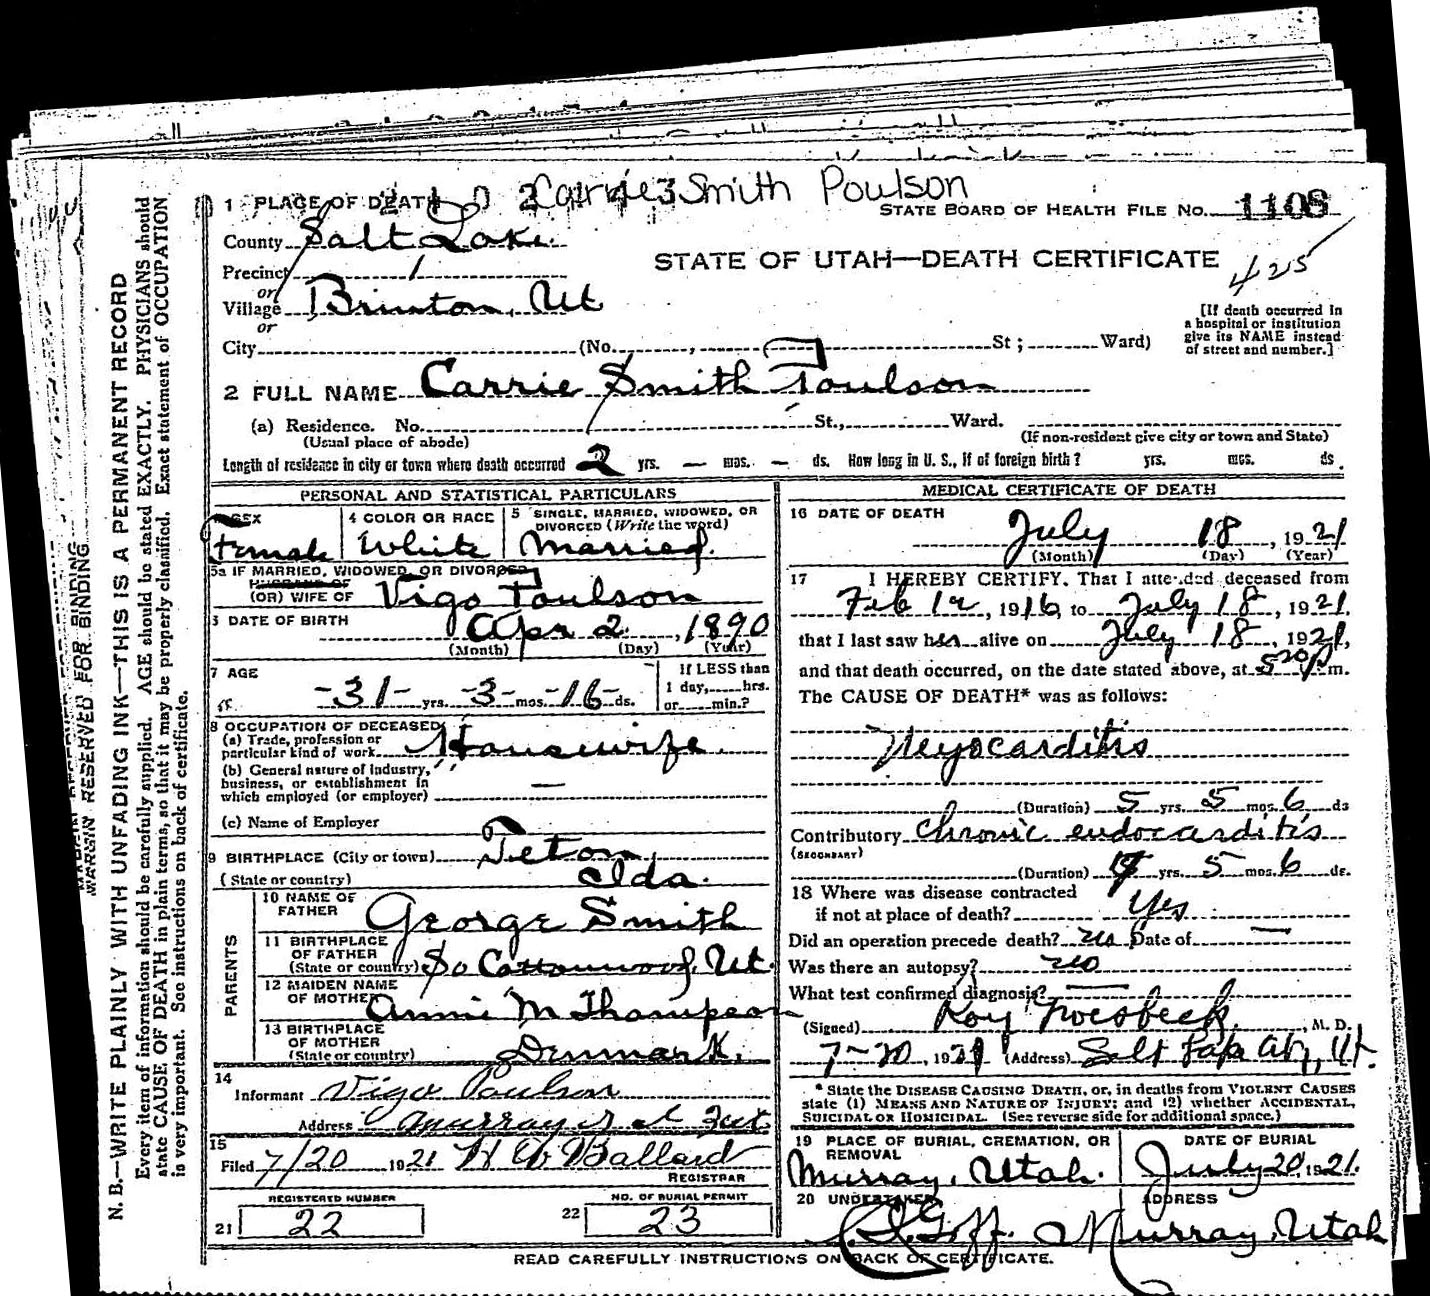 Carrie Smith Poulson
1 PLACE OF DEATH
STATE BOARD OF HEALTH FILE NO. 1108
County Salt Lake
STATE OF UTAH—DEATH CERTIFICATE
425
Precinct 1
or
Village Brinton, Ut
or
City (No. , St ; Ward)
[If death occurred in
a hospital or institution
give its NAME instead
of street and number.]
2 FULL NAME Carrie Smith Poulson
(a) Residence. No. St., Ward.
(Usual place of abode)
(If non-resident give city or town and State)
Length of residence in city or town where death occurred 2 yrs. — mos. — ds. How long in U. S., if of foreign birth? yrs. mos. ds.
PERSONAL AND STATISTICAL PARTICULARS
SEX
Female
4 COLOR OR RACE
White
5 SINGLE, MARRIED, WIDOWED, OR
DIVORCED (Write the word)
Married.
5a IF MARRIED, WIDOWED, OR DIVORCED
HUSBAND OF
(OR) WIFE OF Vigo Poulson
DATE OF BIRTH
Apr 2, 1890
(Month) (Day) (Year)
7 AGE
-31- yrs. -3- mos. -16- ds.
If LESS than
1 day, hrs.
or min.?
8 OCCUPATION OF DECEASED
(a) Trade, profession or
particular kind of work Housewife
(b) General nature of industry,
business, or establishment in
which employed (or employer) —
(c) Name of Employer
9 BIRTHPLACE (City or town) Teton
(State or country) Ida.
PARENTS
10 NAME OF
FATHER George Smith
11 BIRTHPLACE
OF FATHER
(State or country) So Cottonwood, Ut.
12 MAIDEN NAME
OF MOTHER Annie M Thompson
13 BIRTHPLACE
OF MOTHER
(State or country) Denmark.
14
Informant Vigo Poulson
Address Murray
15
Filed 7/20 1921 Ballard
REGISTRAR
REGISTERED NUMBER
21 22
NO. OF BURIAL PERMIT
22 23
MEDICAL CERTIFICATE OF DEATH
16 DATE OF DEATH
July 18, 1921
(Month) (Day) (Year)
17 I HEREBY CERTIFY, That I attended deceased from
Feb 12, 1916, to July 18, 1921,
that I last saw her alive on July 18, 1921,
and that death occurred, on the date stated above, at 5 20 P m.
The CAUSE OF DEATH* was as follows:
Myocarditis
(Duration) 5 yrs. 5 mos. 6 ds
Contributory Chronic endocarditis
(SECONDARY)
(Duration) yrs. 5 mos. 6 ds.
18 Where was disease contracted
if not at place of death? Yes
Did an operation precede death? no Date of —
Was there an autopsy? no
What test confirmed diagnosis? —
(Signed) Roy Groesbeck, M. D.
7-20, 1921 (Address) Salt Lake City, Ut.
* State the DISEASE CAUSING DEATH, or, in deaths from VIOLENT CAUSES
state (1) MEANS AND NATURE OF INJURY; and (2) whether ACCIDENTAL,
SUICIDAL OR HOMICIDAL. (See reverse side for additional space.)
19 PLACE OF BURIAL, CREMATION, OR
REMOVAL
Murray, Utah.
DATE OF BURIAL
July 20, 1921.
20 UNDERTAKER
Goff.
ADDRESS
Murray, Utah
READ CAREFULLY INSTRUCTIONS ON BACK OF CERTIFICATE.
MARGIN RESERVED FOR BINDING
N. B.—WRITE PLAINLY WITH UNFADING INK—THIS IS A PERMANENT RECORD
Every item of information should be carefully supplied. AGE should be stated EXACTLY. PHYSICIANS should
state CAUSE OF DEATH in plain terms, so that it may be properly classified. Exact statement of OCCUPATION
is very important. See instructions on back of certificate.